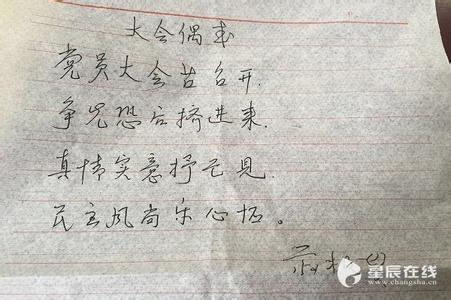 大会偶感
党员大会召开
争先恐后挤进来.
真情实意抒己见.
民主风尚乐心怀。
星辰在线
www.changsha.cn